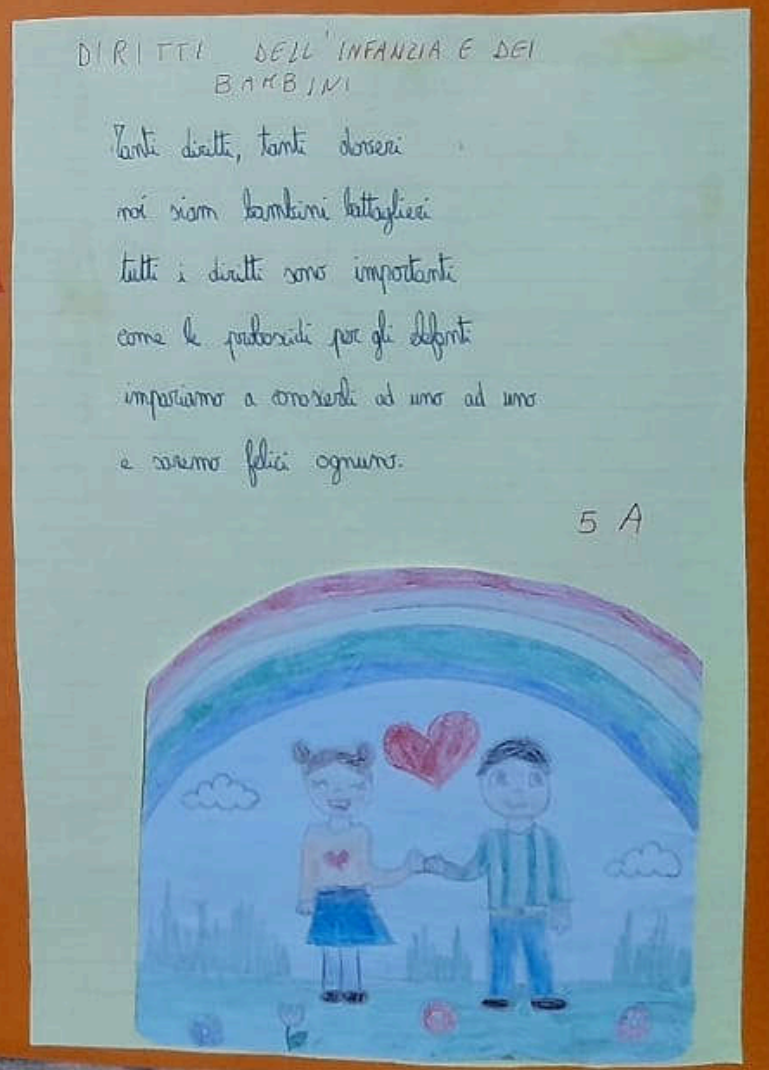 DIRITTI DELL'INFANZIA E DEI
BAMBINI
Tanti diritti, tanti doveri
noi siam bambini battaglieri
tutti i diritti sono importanti
come le proboscidi per gli elefanti
impariamo a conoscerli ad uno ad uno
e saremo felici ognuno.
5 A